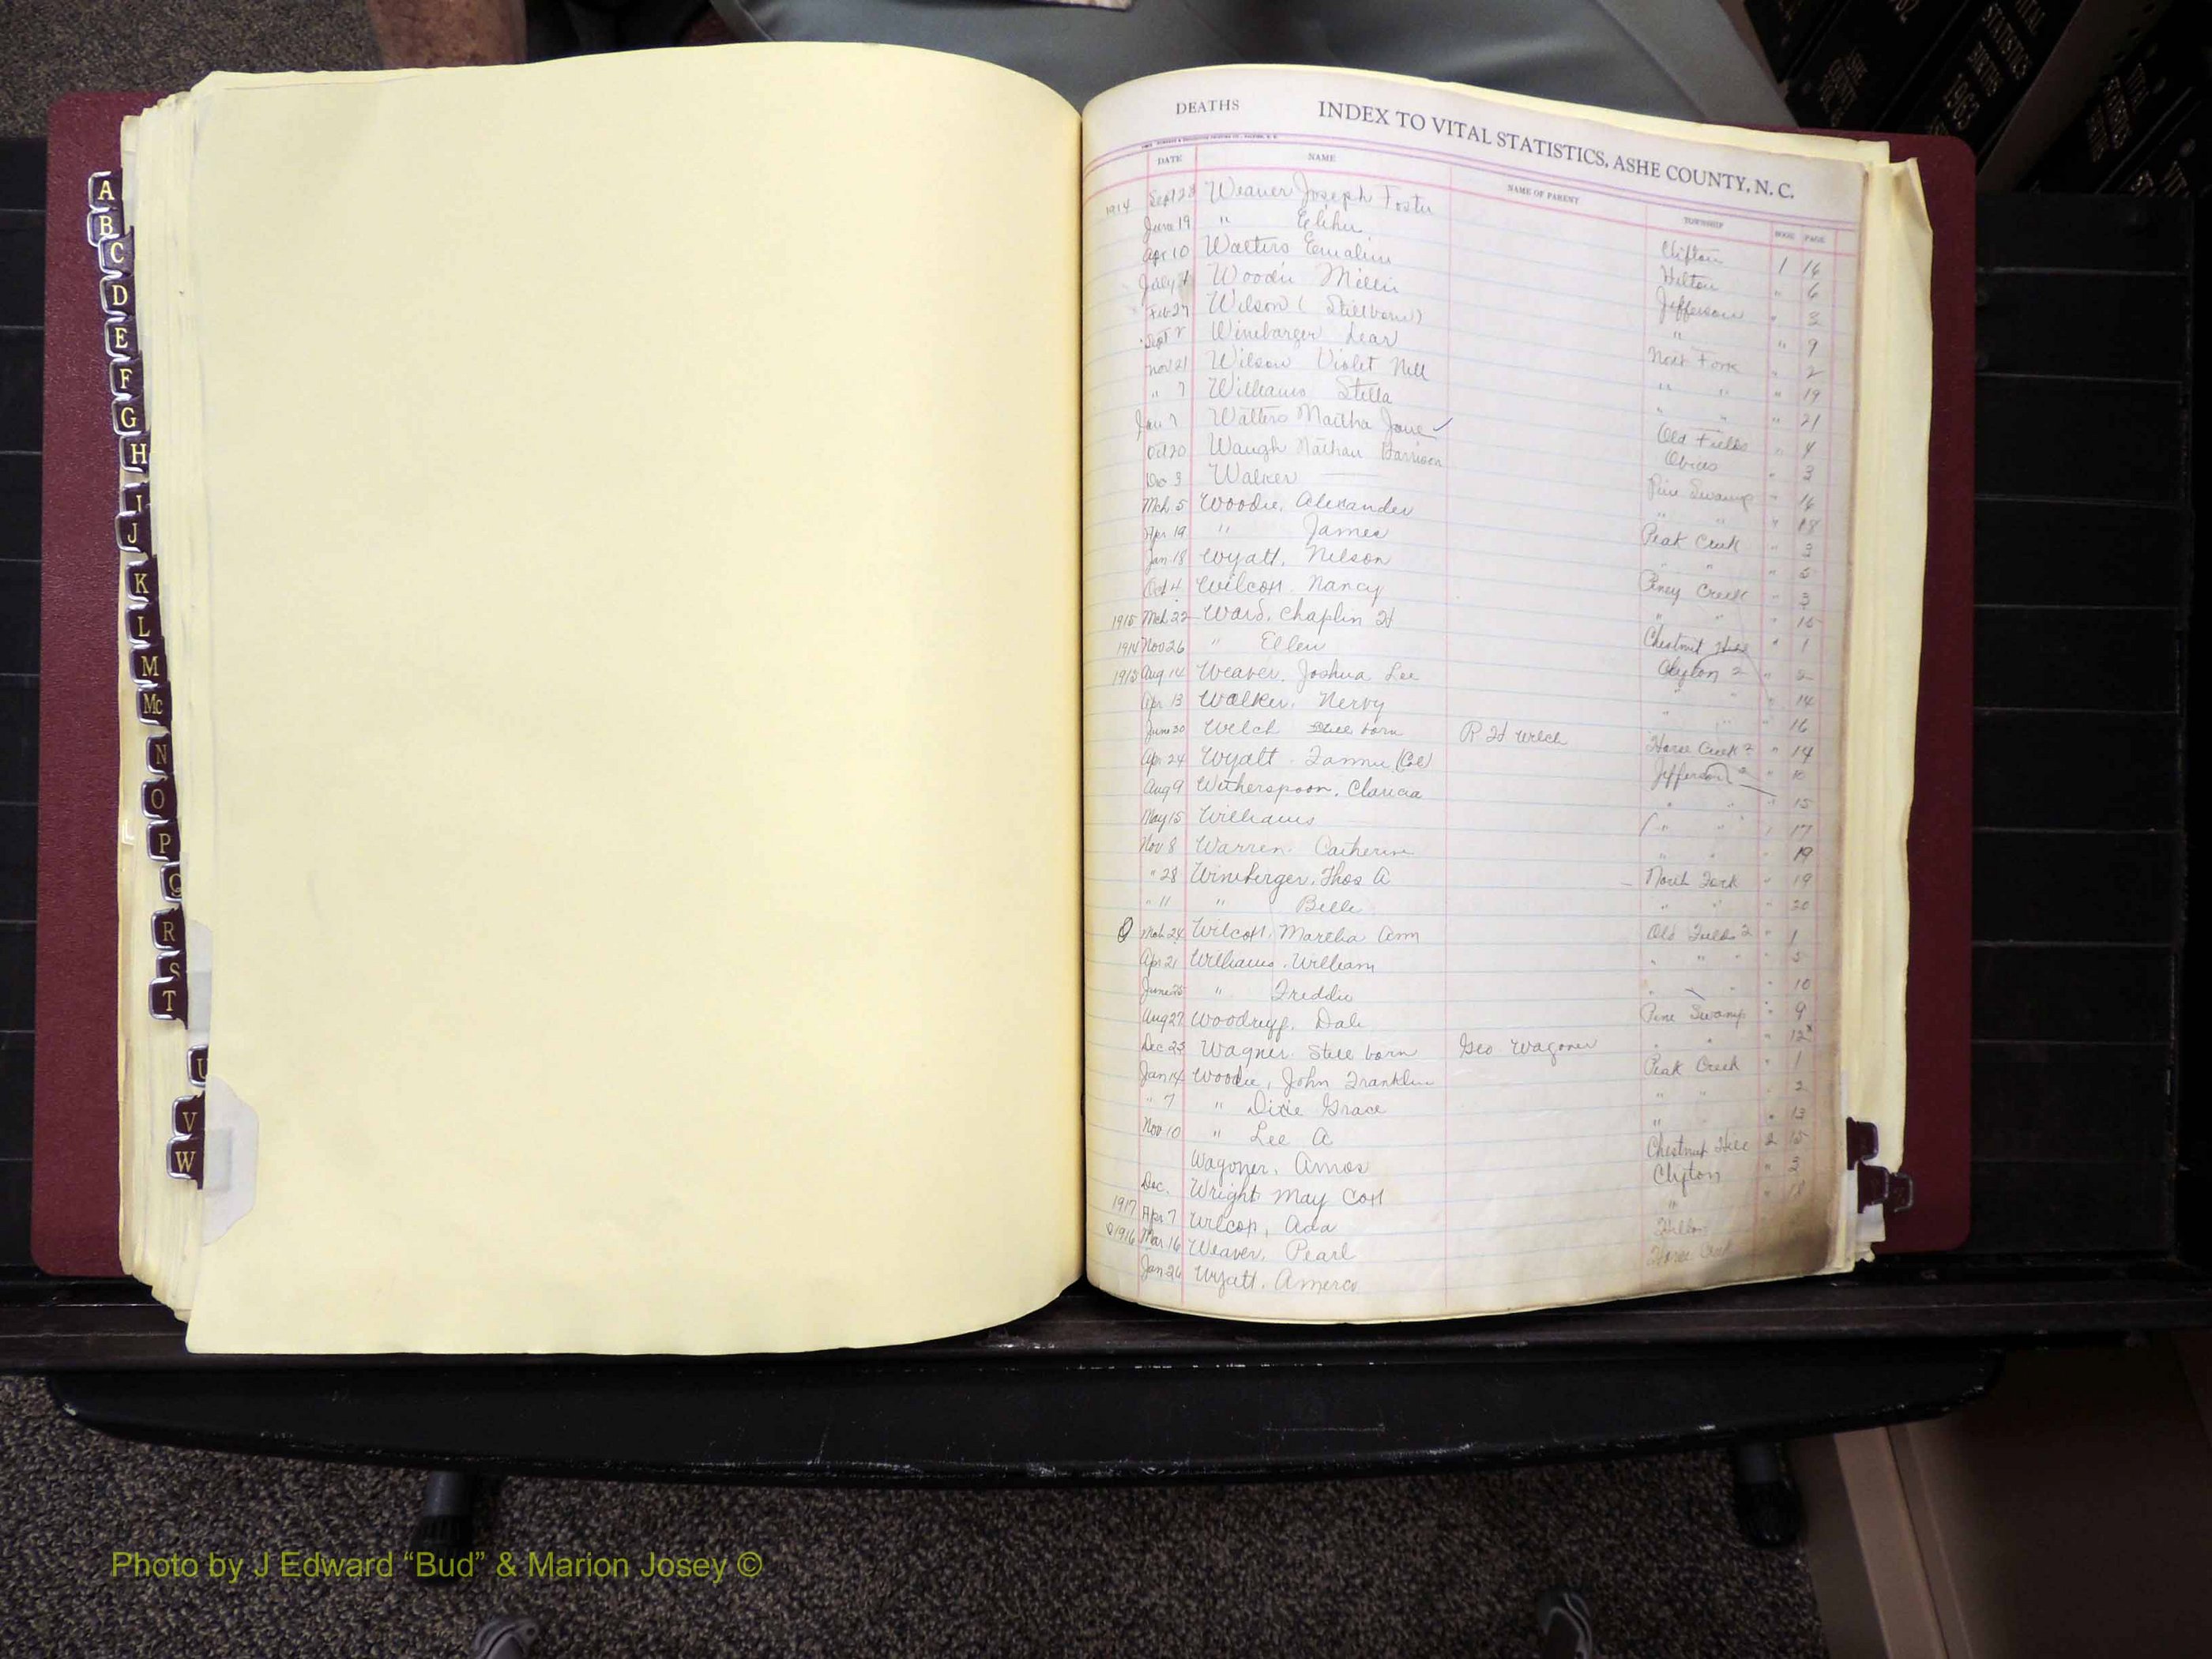 A
B
C
D
E
F
G
H
I
J
K
L
M
Mc
N
O
P
Q
R
S
T
U
V
W
DEATHS INDEX TO VITAL STATISTICS, ASHE COUNTY, N. C.
DATE NAME NAME OF PARENT TOWNSHIP BOOK PAGE
1914 Sept 28 Weaver Joseph Foster Clifton 1 14
June 19 " Elihu Helton " 6
Apr 10 Walters Emaline Jefferson " 3
July 1 Woodie Millie " " 9
Feb 27 Wilson (Stillborn) Nort Fork " 2
Sept Winebarger Lear " " " 19
Nov 21 Wilson Violet Nell " " " 21
" 7 Williams Stella Old Fields " 4
Jan 7 Walters Martha Jane ✓ Obids " 3
Oct 20 Waugh Nathan Harrison Pine Swamp " 16
Dec 3 Walker " " " 18
Mch 5 Woodie, Alexander Peak Creek " 3
Apr 19 " James " " " 5
Jan 18 Wyatt, Nelson Piney Creek " 3
Oct 4 Wilcox, Nancy " " " 15
1915 Mch 22 Ward, Chaplin H Chestnut Hill " 1
1914 Nov 26 " Ellen Clifton 2 "
1915 Aug 14 Weaver, Joshua Lee " " 14
Apr 13 Walker, Nervy " " " 16
June 30 Welch Still born R H Welch Horse Creek 2 " 14
Apr 24 Wyatt Fannie (Col) Jefferson 2 "
Aug 9 Witherspoon, Claricia " " " 15
May 15 Williams " " " 17
Nov 8 Warren Catherine " " " 19
" 28 Wineberger, Thos A North Fork " 19
" 11 " Belle " " " 20
Mch 24 Wilcox, Martha Ann Old Fields 2 " 1
Apr 21 Williams, William " " " 5
June 25 " Freddie " " " 10
Aug 27 Woodruff, Dale Pine Swamp " 9
Dec 23 Wagner Still born Geo Wagoner " " " 12
Jan 14 Woodie, John Franklin Peak Creek " 1
" 7 " Dixie Grace " " " 2
Nov 10 " Lee A " " 13
Wagoner, Amos Chestnut Hill 2 15
Dec. Wright May Cox Clifton " 3
1917 Apr 7 Wilcox, Ada " " 18
1916 Mar 16 Weaver, Pearl Helton
Jan 26 Wyatt, Americo Horse Creek
Photo by J Edward “Bud” & Marion Josey ©